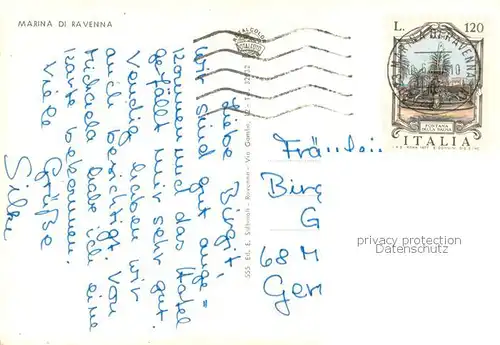 MARINA DI RAVENNA
Liebe Birgit,
wir sind gut ange=
kommen und das Hotel
gefällt mir sehr gut.
Venedig haben wir
auch besichtigt. Von
Michaela habe ich eine
Karte bekommen.
Viele Grüße
Silke
555 Ed. E. Salbaroli - Ravenna - Via
L. 120
MARINA DI RAVENNA
FONTANA
ITALIA
Fräulein
Birg
G
68 M
Ger
privacy protection
Datenschutz